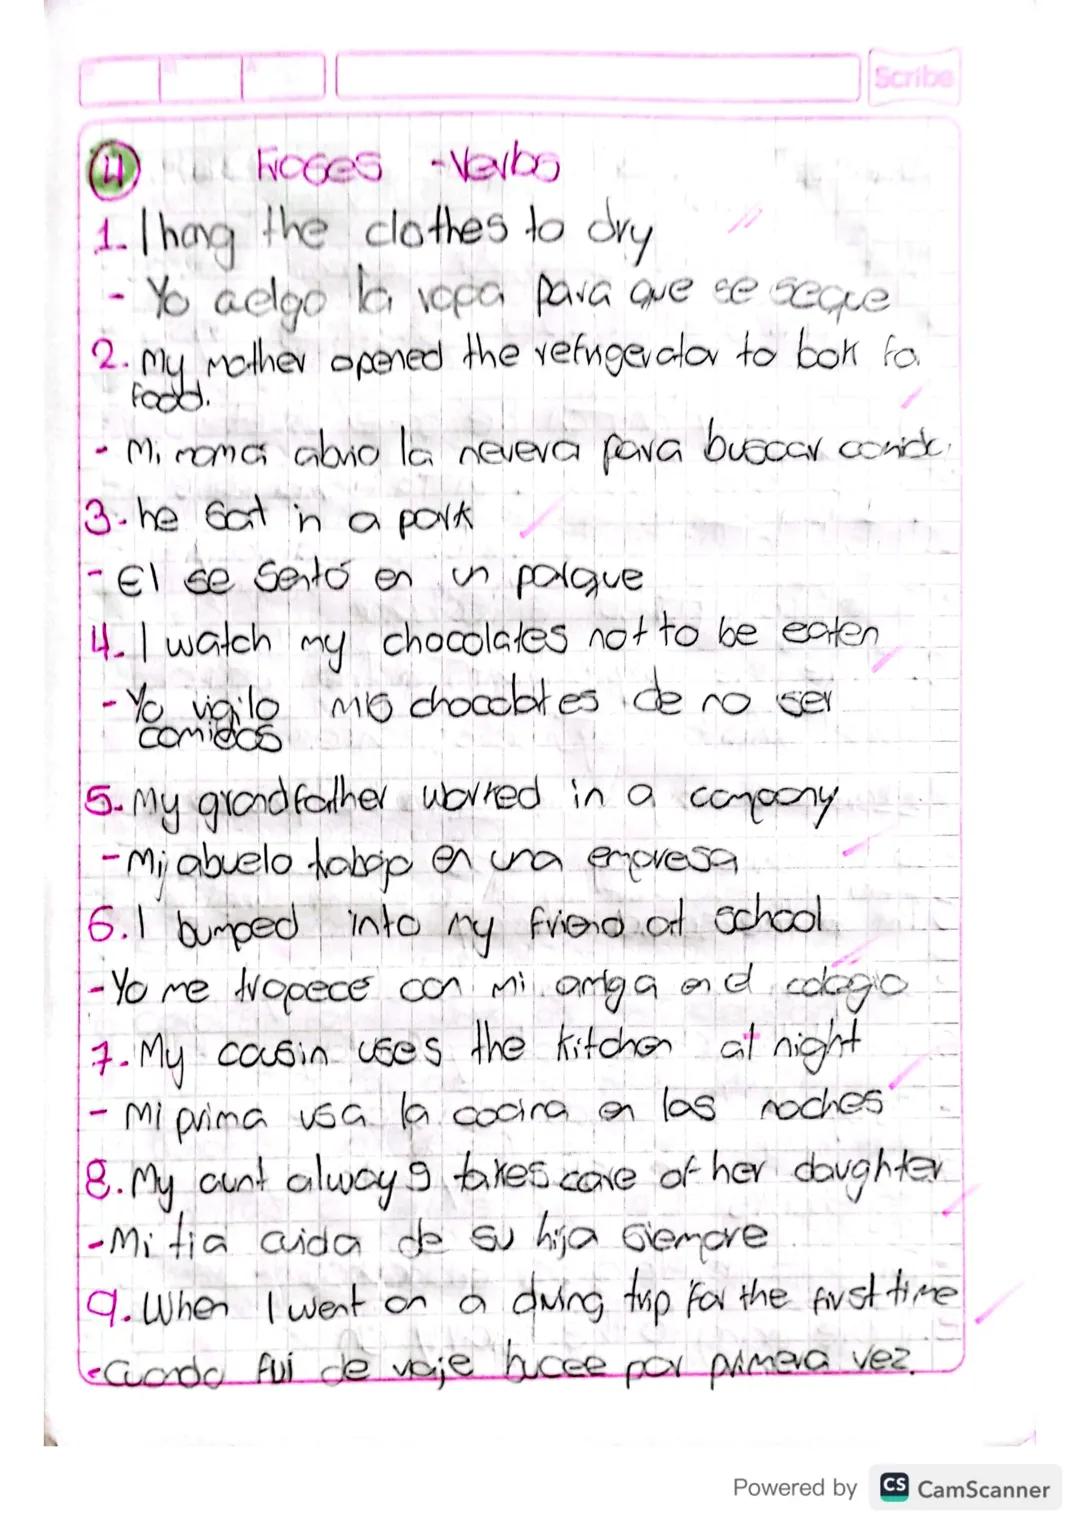 Scribe
4 Frases - Verbs
1. I hang the clothes to dry
- Yo aelgo la ropa para que se seque
2. My mother opened the refrigerator to look fo
food.
- Mi mamá abrio la nevera para buscar comida
3. he sat in a park
- El se sentó en un parque
4. I watch my chocolates not to be eaten
- Yo vigilo mis chocolates de no ser
comidos
5. My grandfather worked in a company
- Mi abuelo trabajo en una empresa
6. I bumped into my friend at school
- Yo me tropecé con mi amiga en el colegio
7. My cousin uses the kitchen at night
- Mi prima usa la cocina en las noches
8. My aunt always takes care of her daughter
- Mi tia cuida de su hija siempre
9. When I went on a diving trip for the first time
- Cuando fui de viaje bucee por primera vez.
Powered by CS CamScanner